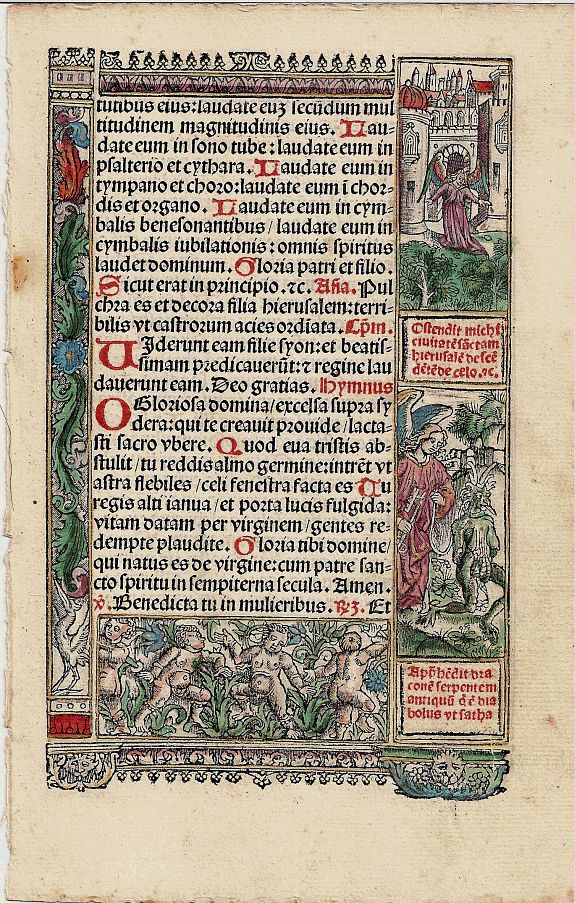 tutibus eius: laudate euʒ secūdum mul
titudinem magnitudinis eius. Lau-
date eum in sono tube: laudate eum in
psalterio et cythara. Laudate eum in
tympano et choro: laudate eum ī chor-
dis et organo. Laudate eum in cym-
balis benesonantibus / laudate eum in
cymbalis iubilationis: omnis spiritus
laudet dominum. Gloria patri et filio.
Sicut erat in principio. ⁊c. Aña. Pul
chra es et decora filia hierusalem: terri-
bilis vt castrorum acies ordiata. Cp̄m.
VIderunt eam filie syon: et beatis-
simam predicauerūt: ⁊ regine lau
dauerunt eam. Deo gratias. Hymnus
O Gloriosa domina / excelsa supra sy
dera: qui te creauit prouide / lacta-
sti sacro vbere. Quod eua tristis ab-
stulit / tu reddis almo germine: intrēt vt
astra flebiles / celi fenestra facta es Tu
regis alti ianua / et porta lucis fulgida:
vitam datam per virginem / gentes re-
dempte plaudite. Gloria tibi domine /
qui natus es de virgine: cum patre san-
cto spiritu in sempiterna secula. Amen.
℣. Benedicta tu in mulieribus. ℟. Et
Ostendit michi
ciuitatē sāctam
hierusalē descē
dētē de celo. ⁊c.
Apph̄ēdit dra
conē serpentem
antiquū q̄ ē dia
bolus vt satha